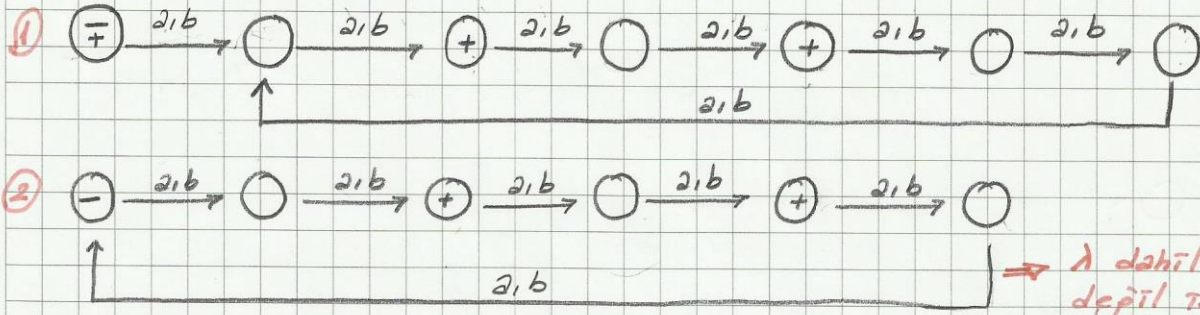 ① ∓ a,b a,b + a,b a,b + a,b a,b
a,b
② - a,b a,b + a,b a,b + a,b
a,b ⇒ λ dahil
değil